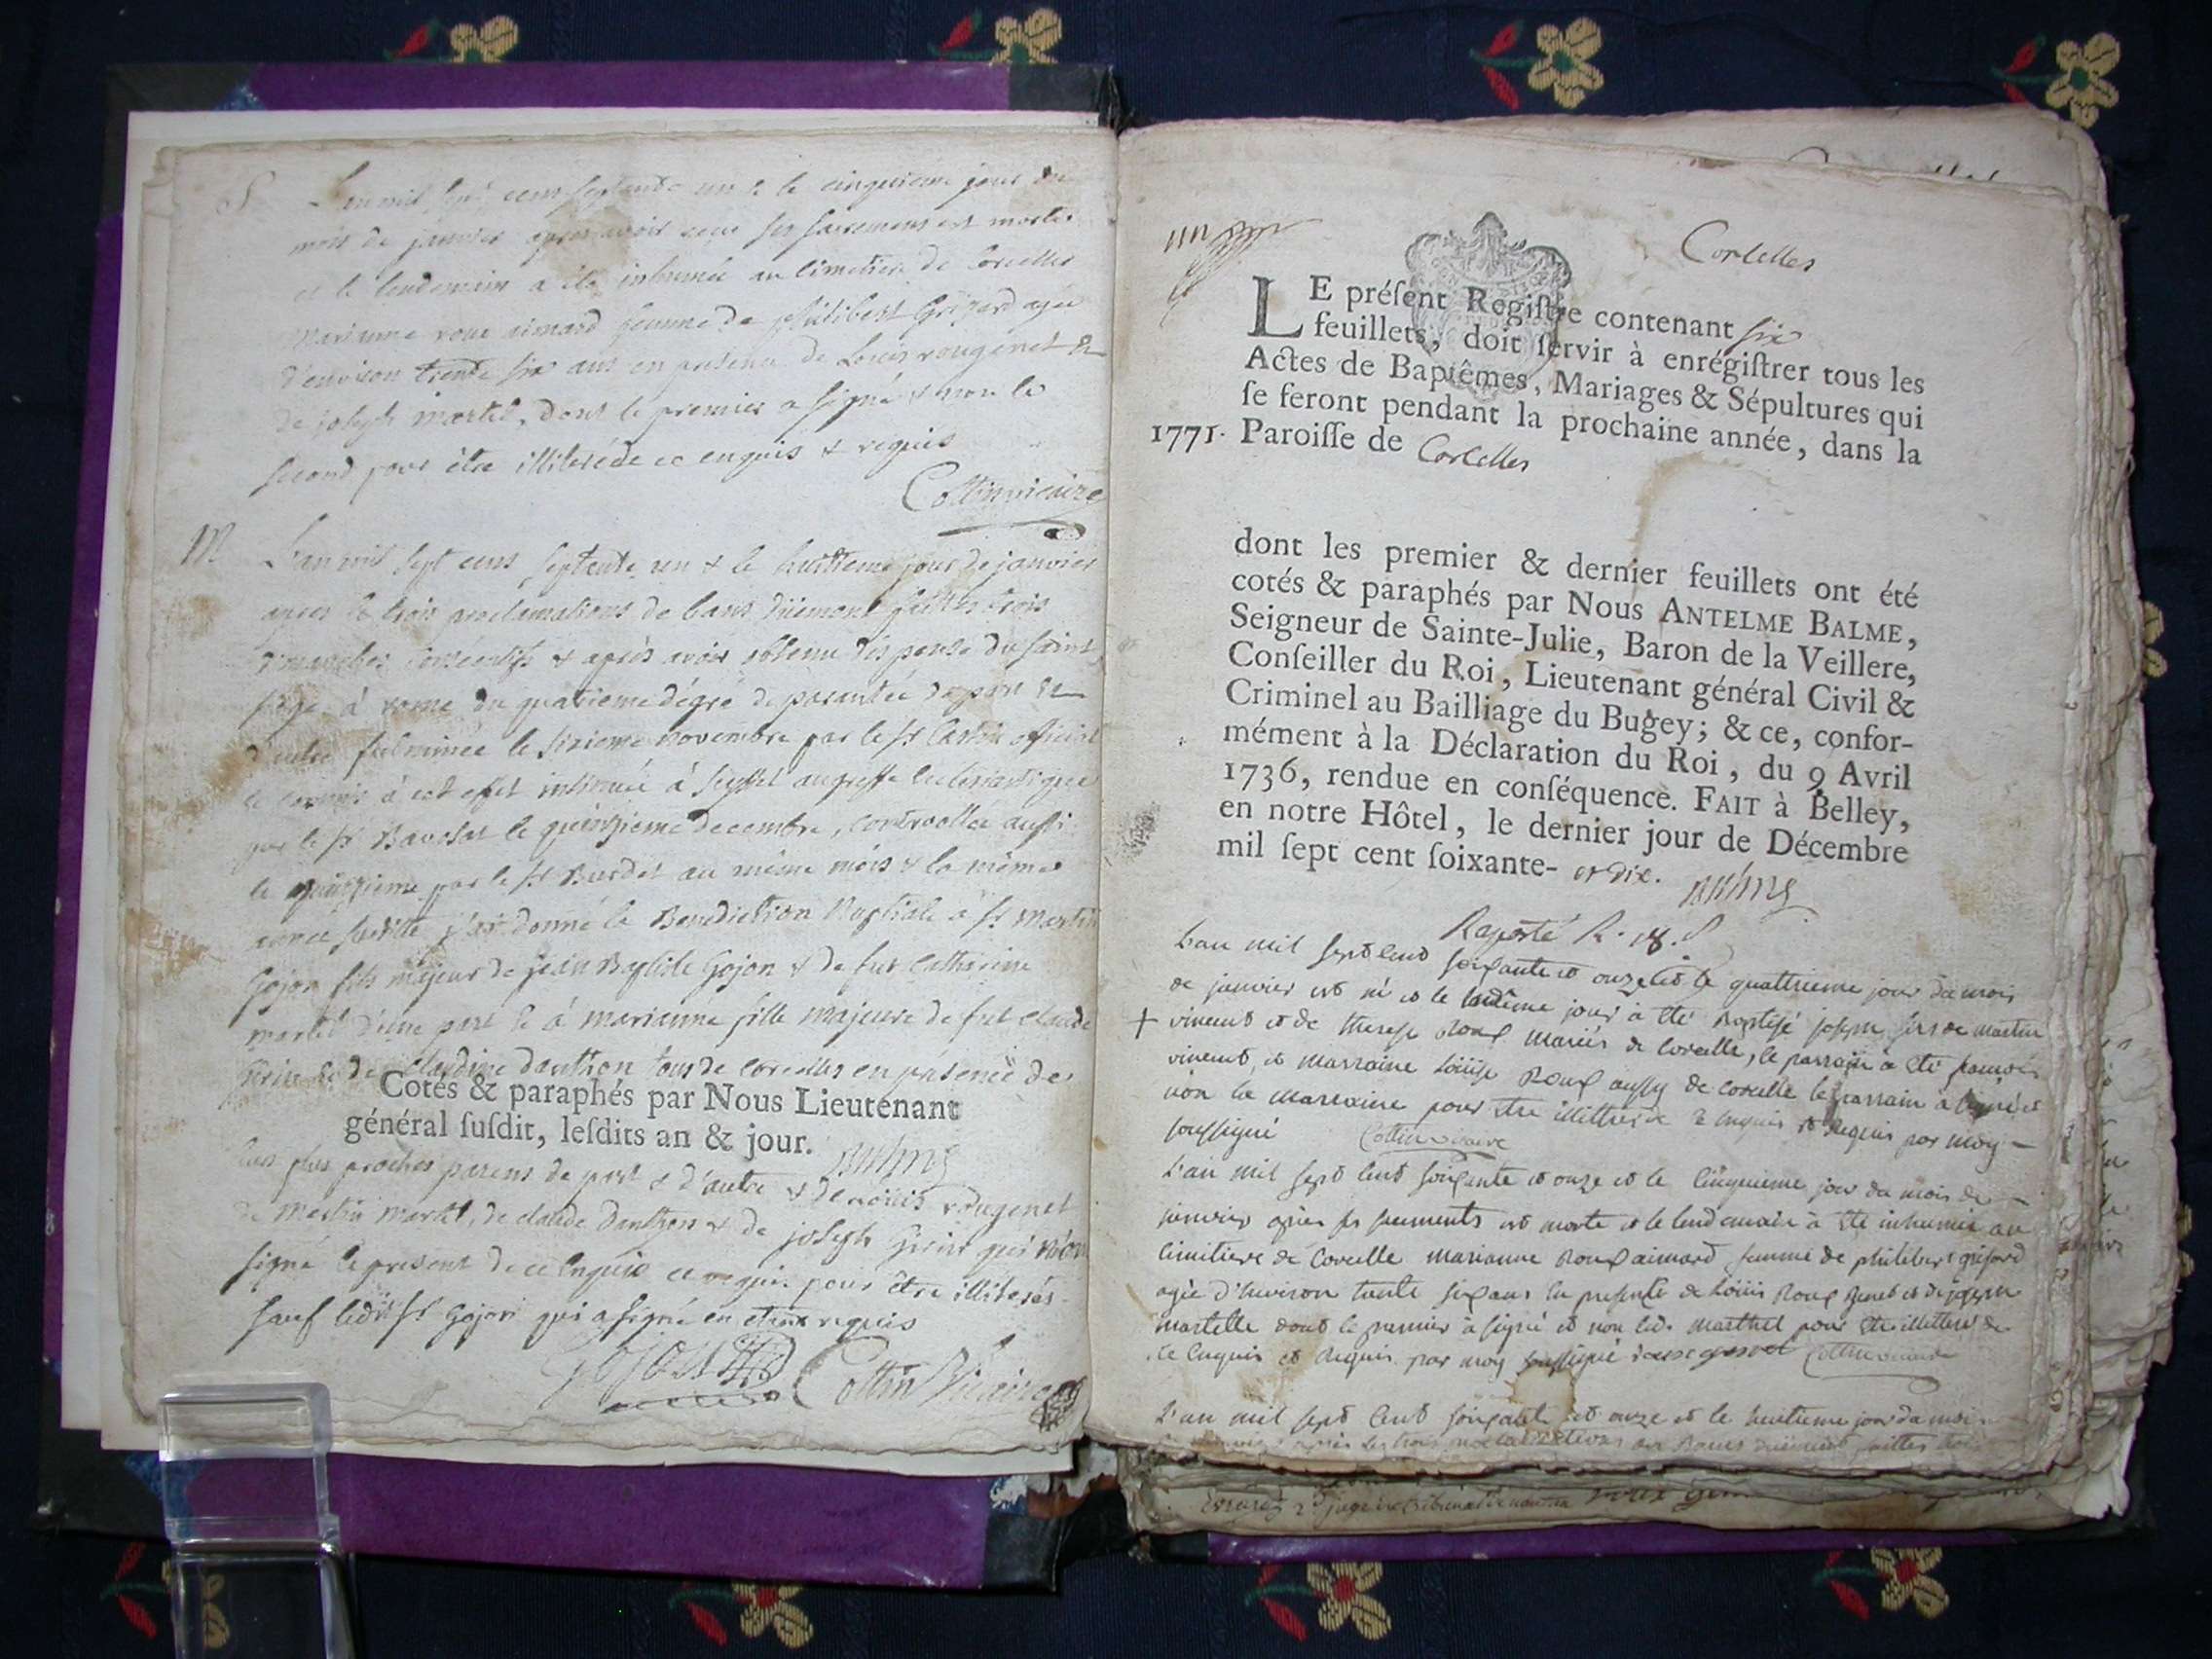 S
L'an mil sept cens septente un & le cinquieme jour du
mois de janvier apres avoir receu ses sacremens est morte
et le lendemain a été inhumée au cimetiere de Corcelles
Marianne roux aimard femme de philibert Grizard agée
d'environ trente six ans en presence de Louis rougenet &
de joseph martel, dont le premier a signé & non le
second pour être illiteré de ce enquis & requis
Cottin vicaire
M
L'an mil sept cens septente un & le huitieme jour de janvier
apres les trois proclamations de bans düement faittes trois
dimanches consécutifs & après avoir obtenu dispense du saint
siége à rome du quatrieme dégré de parantée de part &
d'autre fulminée le sixieme novembre par le sr official
commis à cet effet insinuée à seyssel au greffe ecclésiastique
par le sr Bavosat le quinzieme decembre, controollée aussi
le quinzieme par le sr Burdet au même mois & la même
année susditte j'ai donné la Benediction Nuptiale a sr Martin
Gojon fils majeur de jean Baptiste Gojon & de fut Catherine
martel d'une part & à marianne fille majeure de fut claude
Girin & de claudine danthon tous de corcelles en présence de
Cotés & paraphés par Nous Lieutenant
général ſuſdit, leſdits an & jour.
leurs plus proches parens de part & d'autre & de Louis rougenet
de Martin Martel, de claude Danthon & de joseph Girin qui n'ont
signé le present de ce enquis et requis pour être illiterés
sauf ledit sr Gojon qui a signé en étant requis
Gojon Cottin Vicaire
Corcelles
LE préſent Regiſtre contenant six
feuillets, doit ſervir à enrégiſtrer tous les
Actes de Baptêmes, Mariages & Sépultures qui
ſe feront pendant la prochaine année, dans la
1771. Paroiſſe de Corcelles
dont les premier & dernier feuillets ont été
cotés & paraphés par Nous ANTELME BALME,
Seigneur de Sainte-Julie, Baron de la Veillere,
Conſeiller du Roi, Lieutenant général Civil &
Criminel au Bailliage du Bugey; & ce, confor-
mément à la Déclaration du Roi, du 9 Avril
1736, rendue en conſéquence. FAIT à Belley,
en notre Hôtel, le dernier jour de Décembre
mil ſept cent ſoixante- et dix.
Raporté
L'an mil sept cent soixante et onze et le quattrieme jour du mois
de janvier est né et le même jour à été baptisé joseph fils de martin
+ vincent et de therese Roux mariés de Corcelle, le parrain à été françois
vincent, et marraine Loüise Roux aussy de corcelle le parrain à signé et
non la marraine pour être illitterée de enquis et requis par moy
soussigné Cottin vicaire
L'an mil sept cent soixante et onze et le cinquieme jour du mois de
janvier après ses sacrements est morte et le lendemain à été inhumée au
cimitiere de Corcelle marianne Roux aimard femme de philibert grisard
agée d'environ trente six ans en presence de Loüis Roux Genet et de joseph
martelle dont le premier à signé et non led. marthel pour être illitteré de
ce enquis et requis par moy soussigné rougenet Cottin vicaire
L'an mil sept cent soixante et onze et le huitieme jour du mois
de janvier après les trois proclamations des bans düement faittes